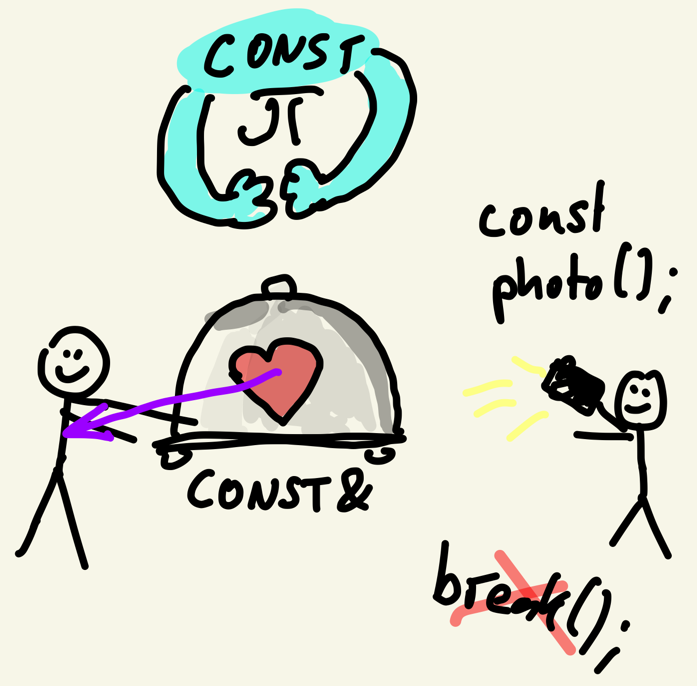 CONST
π
const
photo();
CONST&
break();